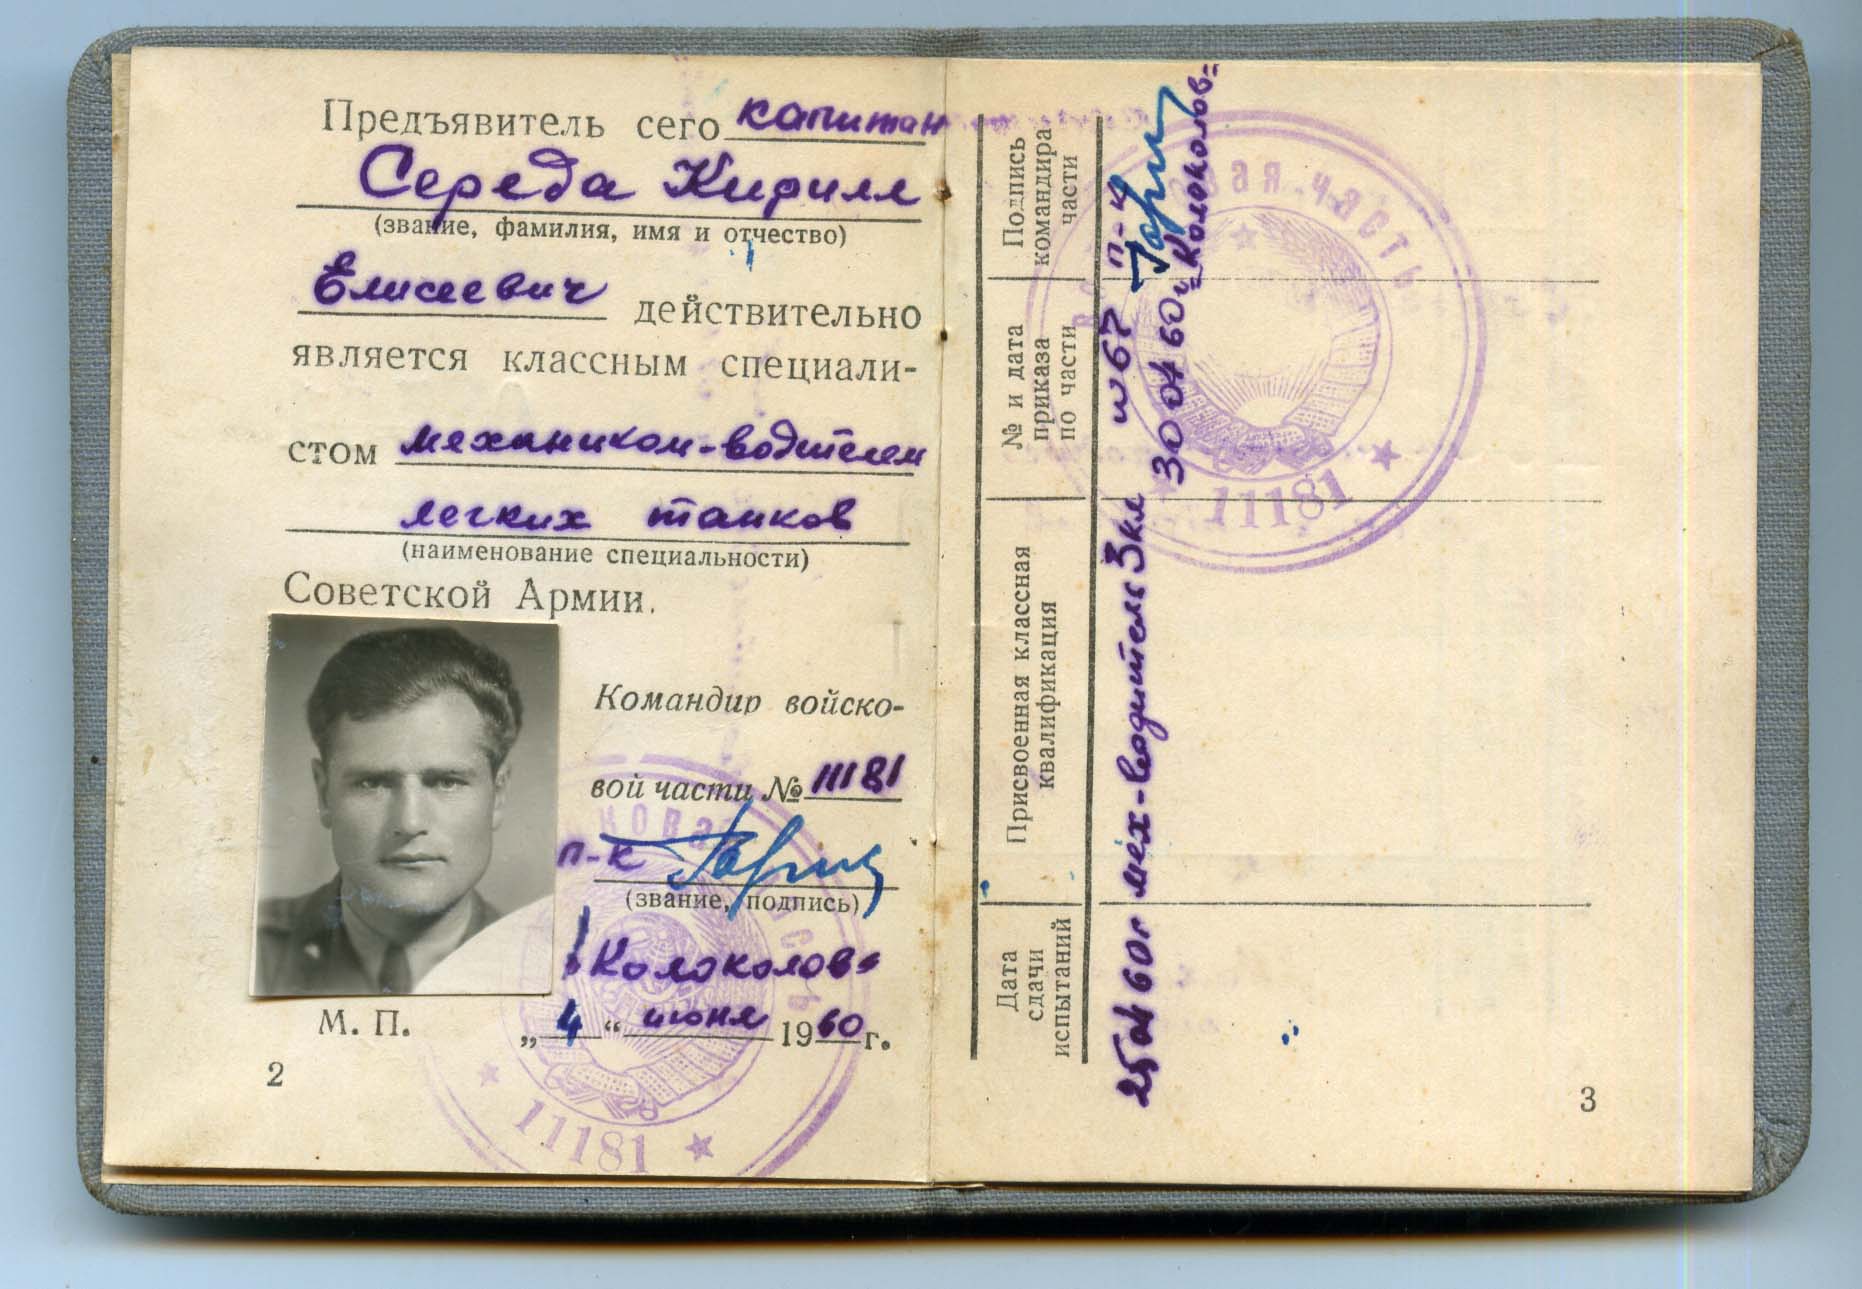 Предъявитель сего капитан
Середа Кирилл
(звание, фамилия, имя и отчество)
Елисеевич действительно
является классным специали-
стом механиком-водителем
легких танков
(наименование специальности)
Советской Армии.
Командир войско-
вой части № 11181
п-к
(звание, подпись)
/Колоколов=
М. П.
„4“ июня 1960 г.
11181
2
Подпись
командира
части
№ и дата
приказа
по части
Присвоенная классная
квалификация
Дата
сдачи
испытаний
25 04 60г мех-водитель 3кл
№67 п-к
30 04 60г
=Колоколов=
вая часть
11181
3